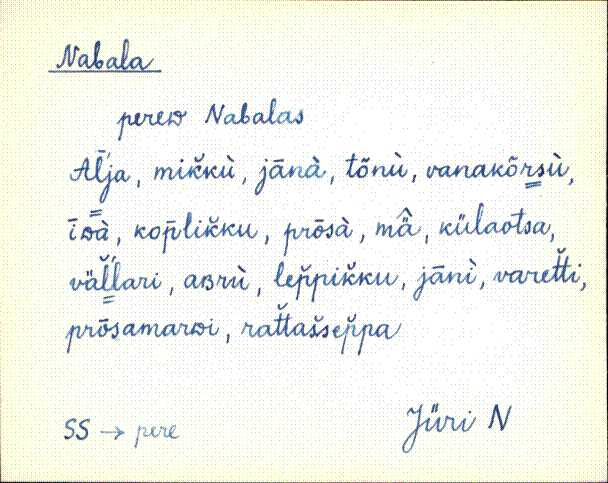 Nabala
pereᴅ Nabalas
Al̄́ja, mik̆kù, jānà, tõnù, vanakõrsù,
īᴅà, kop̄lik̆ku, prōsà, mä̂, külaotsa,
väl̆l̆ari, aʙrù, lep̆pik̆ku, jānì, varet̆ti,
prōsamarᴅi, rat̆tas̆sep̆pa
SS → pere
Jüri N